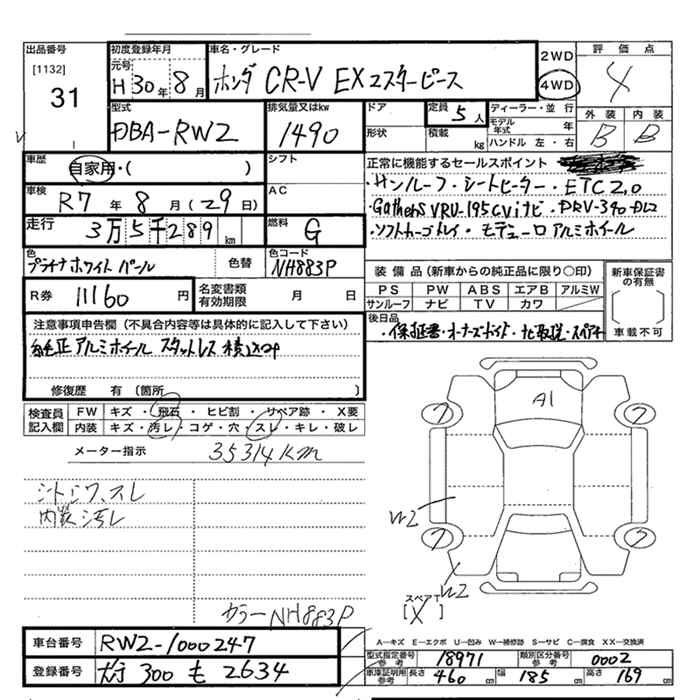 出品番号
[1132]
31
初度登録年月
元号
H 30年 8月
車名・グレード
ホンダ CR-V EX マスターピース
2WD
4WD
評価点
4
外装 内装
B B
型式
DBA-RW2
排気量又はkw
1490
ドア
形状
定員
5人
積載
kg
ディーラー・並行
モデル年式 年
ハンドル 左・右
車歴
自家用・( )
シフト
AC
車検
R7年 8月 (29日)
走行
3万5千289km
燃料
G
正常に機能するセールスポイント
・サンルーフ・シートヒーター・ETC2.0
・Gathers VRU-195CViナビ・DRV-
・ソフトカーゴトレイ・モデューロアルミホイール
色
プラチナホワイトパール
色替
色コード
NH883P
R券
11160円
名変書類
有効期限
月 日
装備品(新車からの純正品に限り○印)
PS PW ABS エアB アルミW
サンルーフ ナビ TV カワ
新車保証書の有無
[ ]
車載不可
後日品
・保証書・オーナーズガイド・ナビ取説・スペアキー
注意事項申告欄(不具合内容等は具体的に記入して下さい)
純正アルミホイール スタッドレス 積込
修復歴 有(箇所 )
検査員記入欄
FW キズ・飛石・ヒビ割・リペア跡・X要
内装 キズ・汚レ・コゲ・穴・スレ・キレ・破レ
メーター指示
35314km
シートシワ、スレ
内装汚レ
カラーNH883P
A1
W2
W2
スペアT
[X]
A―キズ E―エクボ U―凹み W―補修跡 S―サビ C―腐食 XX―交換済
車台番号
RW2-1000247
登録番号
300 も 2634
型式指定番号
参考
18971
類別区分番号
参考
0002
車庫証明用
参考
長さ 460cm
幅 185cm
高さ 169cm